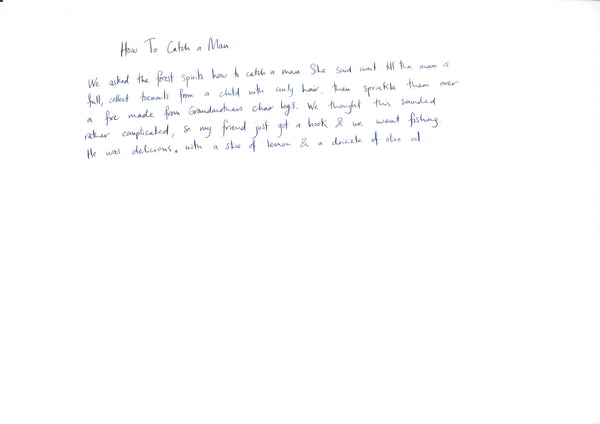 How To Catch a Man.
We asked the forest spirits how to catch a man. She said wait till the moon is
full, collect toenails from a child with curly hair, then sprinkle them over
a fire made from Grandmothers chair legs. We thought this sounded
rather complicated, so my friend just got a hook & we went fishing.
He was delicious, with a slice of lemon & a drizzle of olive oil.